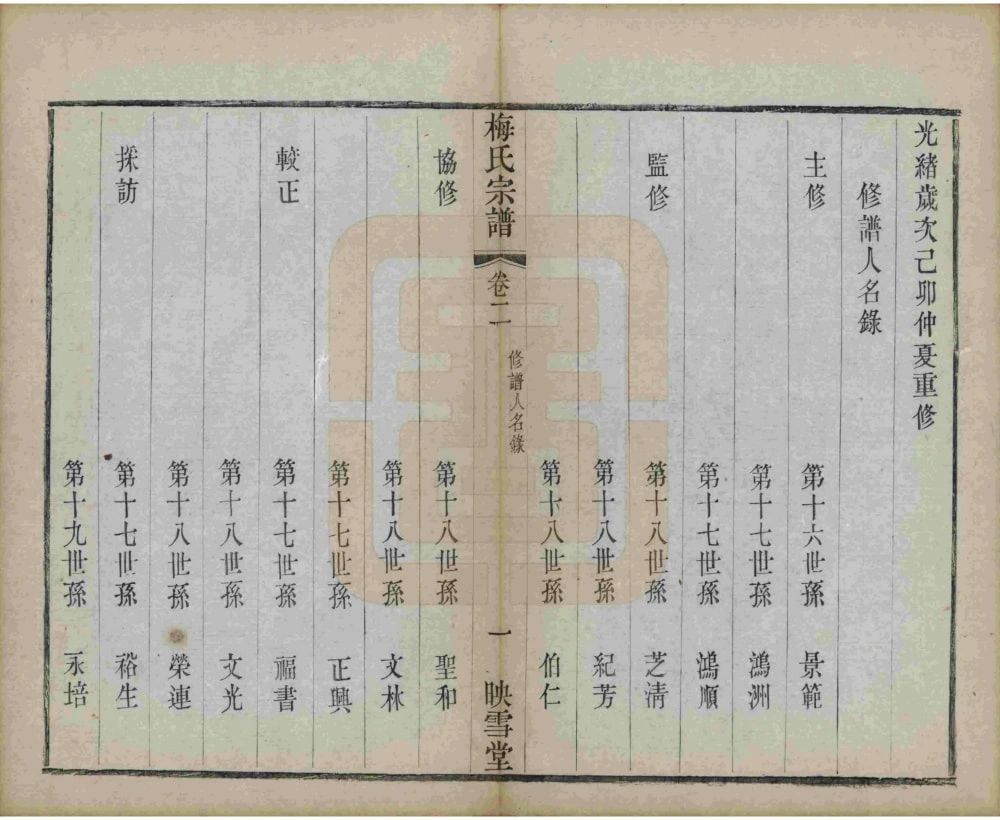 光緒歲次己卯仲夏重修
修譜人名錄
主修 第十六世孫 景範
第十七世孫 鴻洲
第十七世孫 鴻順
監修 第十八世孫 芝清
第十八世孫 紀芳
第十八世孫 伯仁
梅氏宗譜 卷二 修譜人名錄 一 映雪堂
協修 第十八世孫 聖和
第十八世孫 文林
第十七世孫 正興
較正 第十七世孫 福書
第十八世孫 文光
第十八世孫 榮連
採訪 第十七世孫 裕生
第十九世孫 永培